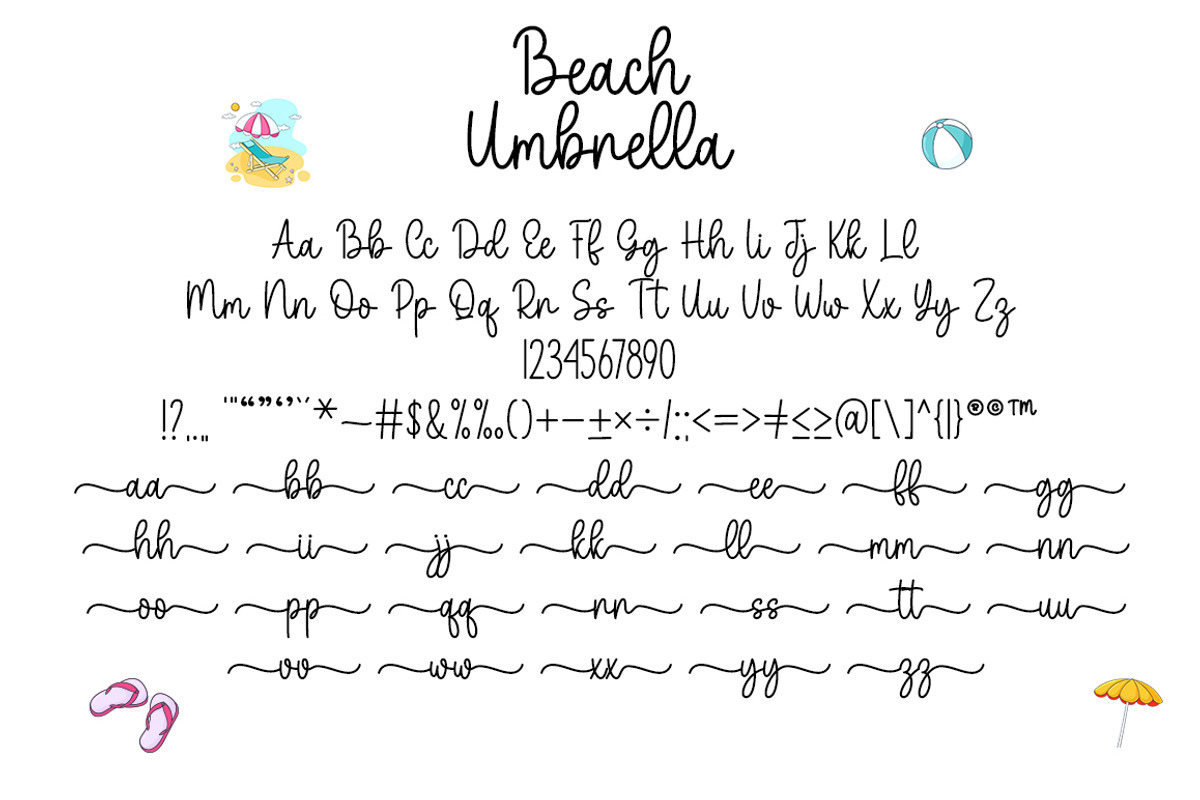 Beach
Umbrella
Aa Bb Cc Dd Ee Ff Gg Hh Ii Jj Kk Ll
Mm Nn Oo Pp Qq Rr Ss Tt Uu Vv Ww Xx Yy Zz
1234567890
!?,.„ '"“”‘’`´*~#$&%‰()+−±×÷/:;<=>≠≤≥@[\]^{|}®©™
aa bb cc dd ee ff gg
hh ii jj kk ll mm nn
oo pp qq rr ss tt uu
vv ww xx yy zz